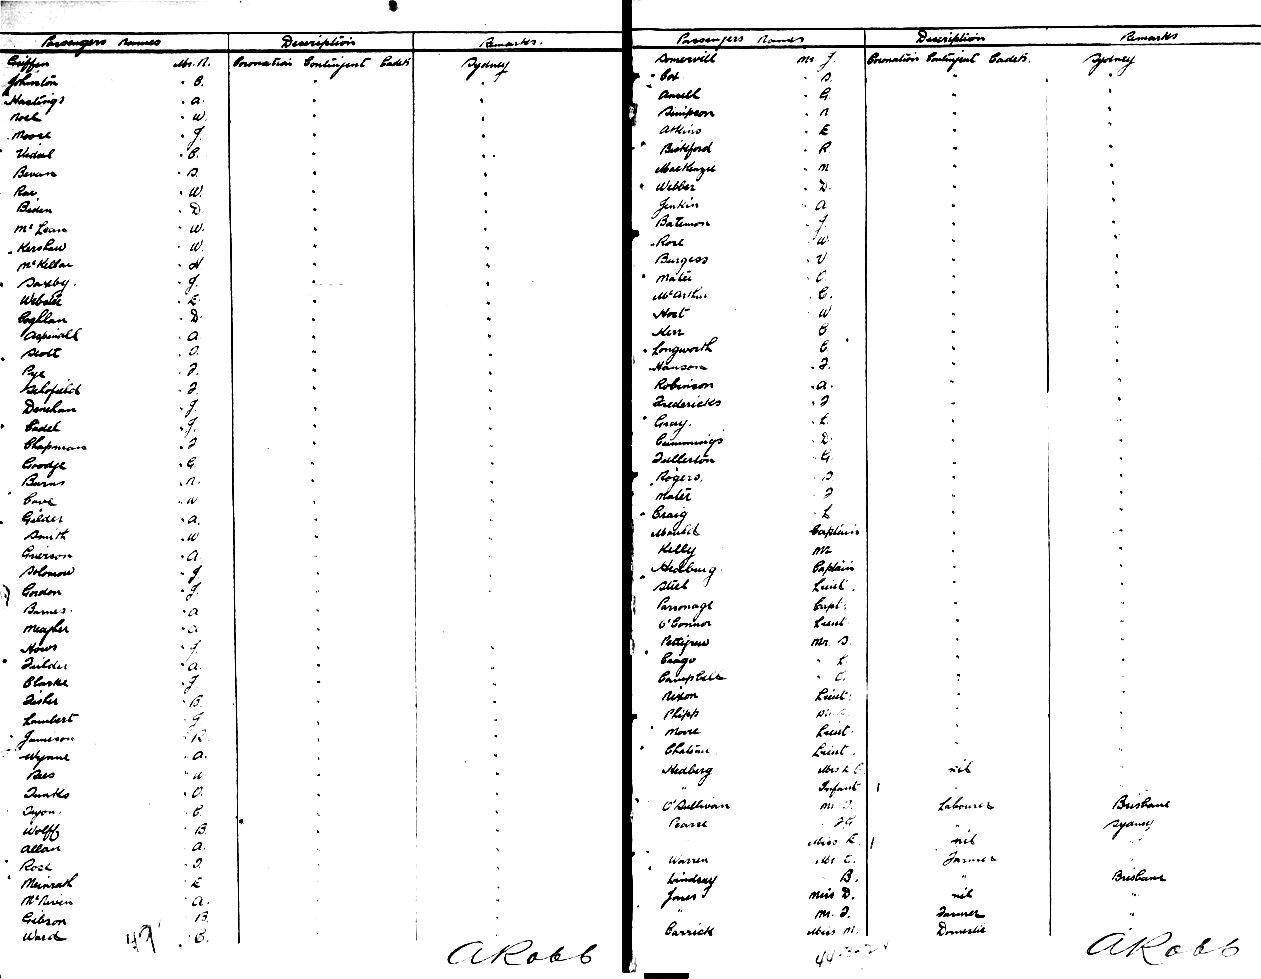 Passengers Names Description Remarks.
Griffen Mr. R. Coronation Contingent Cadets Sydney
Johnston " C. " "
Hastings " A. " "
Noel " W. " "
Moore " J. " "
Vidal " C. " "
Bevan " S. " "
Rae " W. " "
Biden " D. " "
McLean " W. " "
Kershaw " W. " "
McKellar " N " "
Saxby. " J. " "
Webster " E. " "
Coghlan " D. " "
Aspinall " A " "
Scott " O. " "
Pye " F. " "
Schofield " F " "
Denehan " J. " "
Cadel " J. " "
Chapman " F " "
Goodge " G. " "
Burns " R. " "
Cave " W " "
Gilder " A. " "
Smith " W " "
Grierson " A " "
Solomon " J " "
Gordon " J. " "
Barnes. " A " "
Meagher " A " "
Hows " J " "
Fielder " A. " "
Clarke " J " "
Fisher " B. " "
Lambert " G " "
Jameson " R. " "
Wynne " A. " "
Bees " W " "
Funks " O. " "
Tyson. " C. " "
Wolff " B. " "
Allan " A. " "
Rose " F. " "
Meinrath " E " "
McNiven " A. " "
Gibson " B. " "
Ward " C. " "
49
A Robb
Passengers Names Description Remarks
Somervill Mr J. Coronation Contingent Cadets. Sydney
Cox " S. " "
Ansell " G. " "
Simpson " R " "
Atkins " E " "
Bickford " R. " "
MacKenzie " N " "
Webber " D. " "
Jenkin " A " "
Bateman " J. " "
Rose " W. " "
Burgess " V " "
Mater " C. " "
McArthur " C. " "
Host " W " "
Kerr " C " "
Longworth " C. " "
Hanson " F. " "
Robinson " A. " "
Fredericks " F " "
Gray. " L. " "
Cummings " D. " "
Fullerton " G. " "
Rogers. " S " "
Mater " F " "
Craig " L " "
Captain " "
Kelly Mr " "
Hedberg Captain " "
Steel Lieut. " "
Parsonage Capt. " "
O'Connor Lieut " "
Pettigrew Mr. S. " "
Crago " L. " "
Campbell " C. " "
Nixon Lieut. " "
Phipps " "
Moore Lieut. " "
Chateau Lieut. " "
Hedberg Mrs L C. nil "
" Infant 1 " "
O'Sullivan Mr. J. Labourer Brisbane
Pearse " Sydney
Miss E. 1 nil "
Warren Mr. C. Farmer "
Lindsay B. " Brisbane
Jones Miss D. nil "
" Mr. F. Farmer "
Carrick Miss M. Domestic "
A Robb